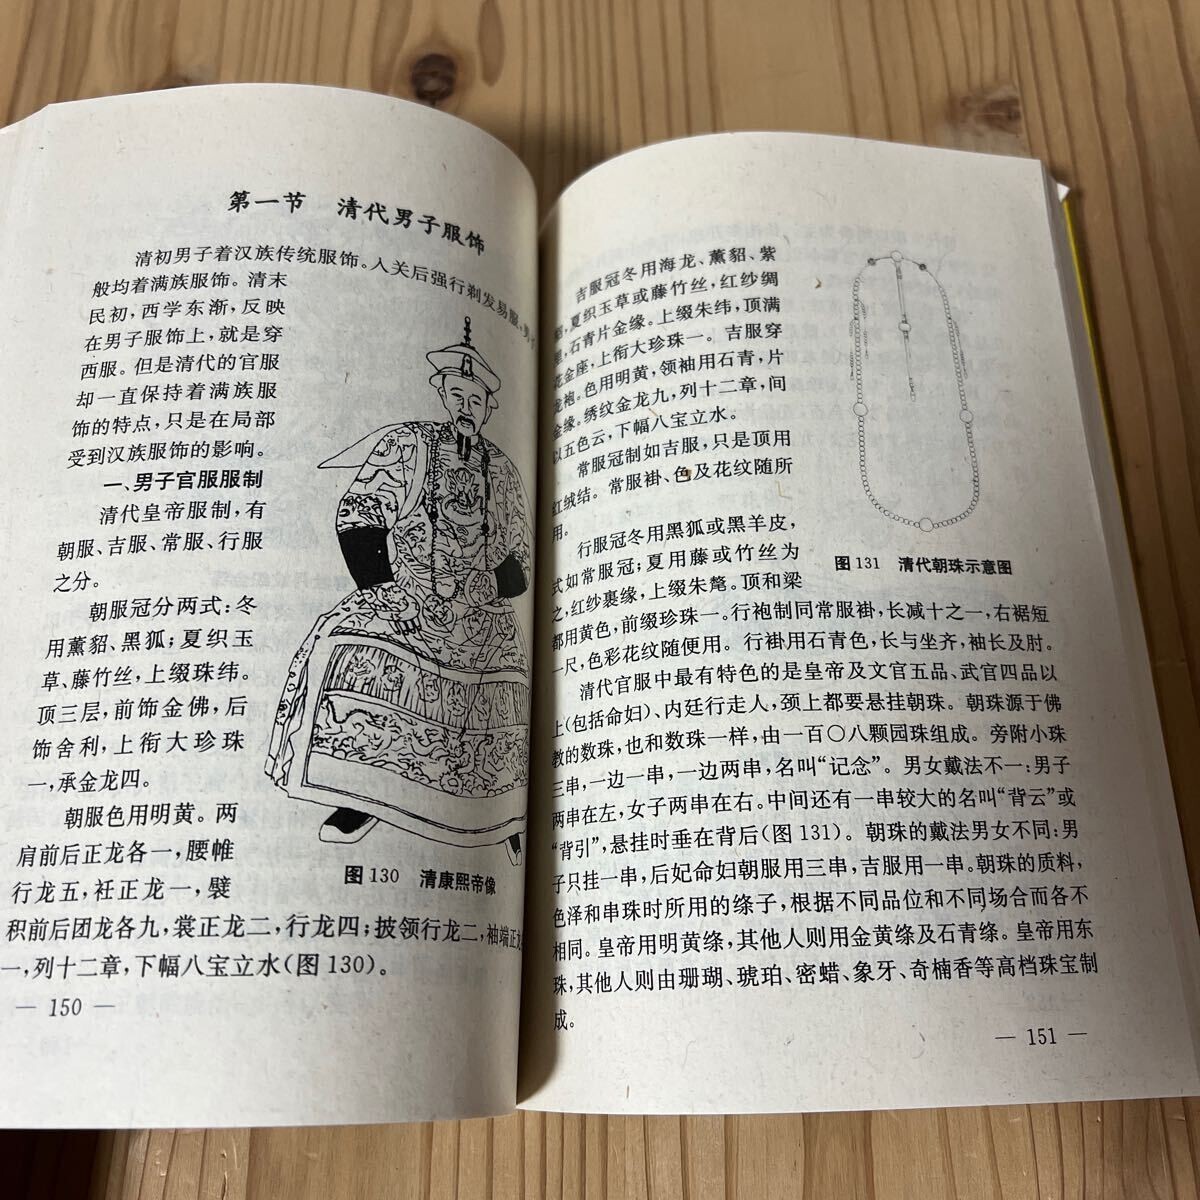 第一节 清代男子服饰
清初男子着汉族传统服饰。入关后强行剃发易服，男
般均着满族服饰。清末
民初，西学东渐，反映
在男子服饰上，就是穿
西服。但是清代的官服
却一直保持着满族服
饰的特点，只是在局部
受到汉族服饰的影响。
一、男子官服服制
清代皇帝服制，有
朝服、吉服、常服、行服
之分。
朝服冠分两式：冬
用薰貂、黑狐；夏织玉
草、藤竹丝，上缀珠纬。
顶三层，前饰金佛，后
饰舍利，上衔大珍珠
一，承金龙四。
朝服色用明黄。两
肩前后正龙各一，腰帷
行龙五，衽正龙一，襞
积前后团龙各九，裳正龙二，行龙四；披领行龙二，袖端正龙
一，列十二章，下幅八宝立水（图130）。
图130 清康熙帝像
— 150 —
吉服冠冬用海龙、薰貂、紫
貂，夏织玉草或藤竹丝，红纱绸
里，石青片金缘。上缀朱纬，顶满
花金座，上衔大珍珠一。吉服穿
龙袍。色用明黄，领袖用石青，片
金缘。绣纹金龙九，列十二章，间
以五色云，下幅八宝立水。
常服冠制如吉服，只是顶用
红绒结。常服褂、色及花纹随所
用。
行服冠冬用黑狐或黑羊皮，
式如常服冠；夏用藤或竹丝为
之，红纱裹缘，上缀朱氂。顶和梁
都用黄色，前缀珍珠一。行袍制同常服褂，长减十之一，右裾短
一尺，色彩花纹随便用。行褂用石青色，长与坐齐，袖长及肘。
清代官服中最有特色的是皇帝及文官五品、武官四品以
上（包括命妇）、内廷行走人，颈上都要悬挂朝珠。朝珠源于佛
教的数珠，也和数珠一样，由一百〇八颗园珠组成。旁附小珠
三串，一边一串，一边两串，名叫“记念”。男女戴法不一：男子
两串在左，女子两串在右。中间还有一串较大的名叫“背云”或
“背引”，悬挂时垂在背后（图131）。朝珠的戴法男女不同：男
子只挂一串，后妃命妇朝服用三串，吉服用一串。朝珠的质料，
色泽和串珠时所用的绦子，根据不同品位和不同场合而各不
相同。皇帝用明黄绦，其他人则用金黄绦及石青绦。皇帝用东
珠，其他人则由珊瑚、琥珀、密蜡、象牙、奇楠香等高档珠宝制
成。
图131 清代朝珠示意图
— 151 —